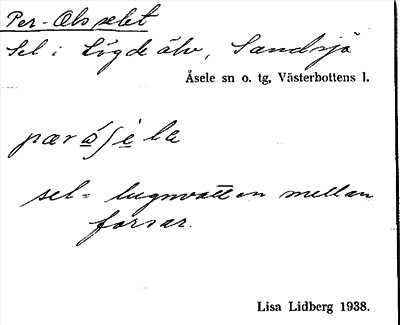 Per-Ols selet
Sel i Lögde älv, Sandsjö
Åsele sn o. tg, Västerbottens l.
sel = lugnvatten mellan
forsar.
Lisa Lidberg 1938.